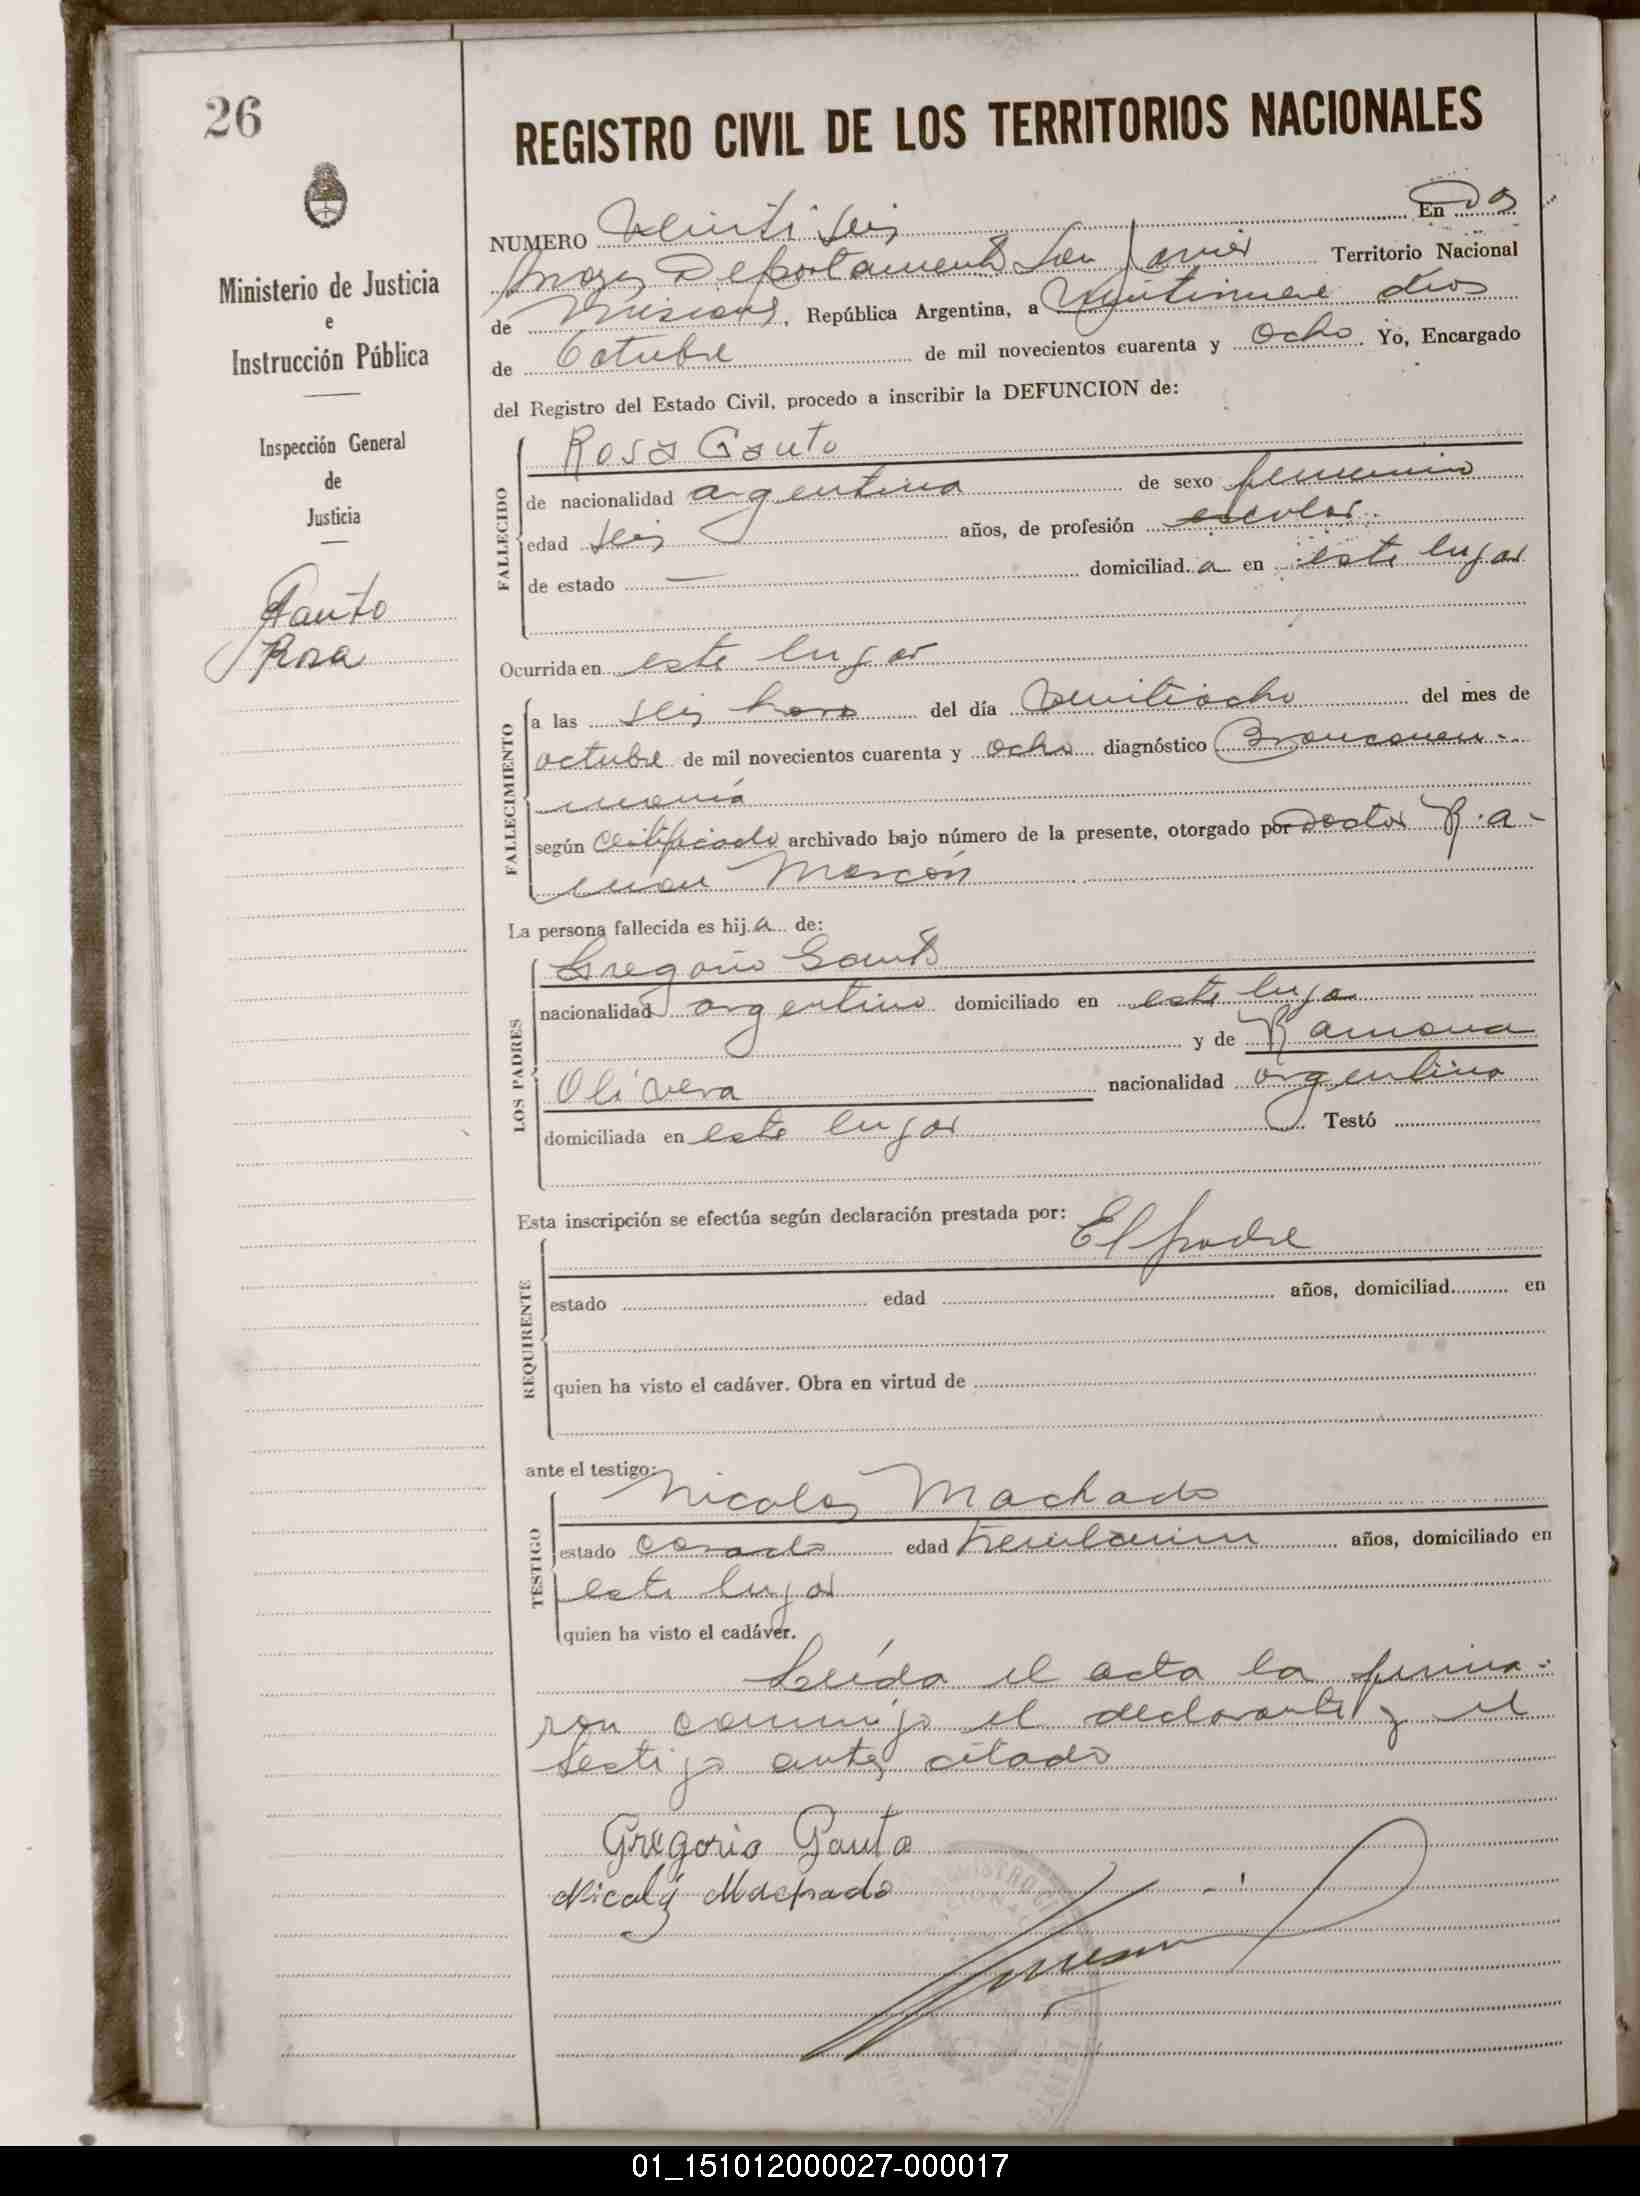 26
REGISTRO CIVIL DE LOS TERRITORIOS NACIONALES
Ministerio de Justicia
e
Instrucción Pública
Inspección General
de
Justicia
Gauto
Rosa
NUMERO Veinti seis En Dos
Departamento San Javier Territorio Nacional
de Misiones, República Argentina, a veintinueve dias
de Octubre de mil novecientos cuarenta y ocho Yo, Encargado
del Registro del Estado Civil, procedo a inscribir la DEFUNCION de:
FALLECIDO
Rosa Gauto
de nacionalidad argentina de sexo femenino
edad seis años, de profesión escolar
de estado — domiciliad a en este lugar
Ocurrida en este lugar
FALLECIMIENTO
a las seis horas del día veintiocho del mes de
octubre de mil novecientos cuarenta y ocho diagnóstico Bronconeu-
monia
según certificado archivado bajo número de la presente, otorgado por Doctor
LOS PADRES
La persona fallecida es hij a de:
Gregorio Gauto
nacionalidad argentino domiciliado en este lugar
y de Ramona
Olivera nacionalidad argentina
domiciliada en este lugar Testó
Esta inscripción se efectúa según declaración prestada por:
El padre
REQUIRENTE
estado edad años, domiciliad en
quien ha visto el cadáver. Obra en virtud de
ante el testigo:
Nicolas Machado
TESTIGO
estado casado edad años, domiciliado en
este lugar
quien ha visto el cadáver.
Leida el acta la firma-
ron conmigo el declarante y el
testigo antes citado
Gregorio Gauto
Nicolas Machado
01_151012000027-000017